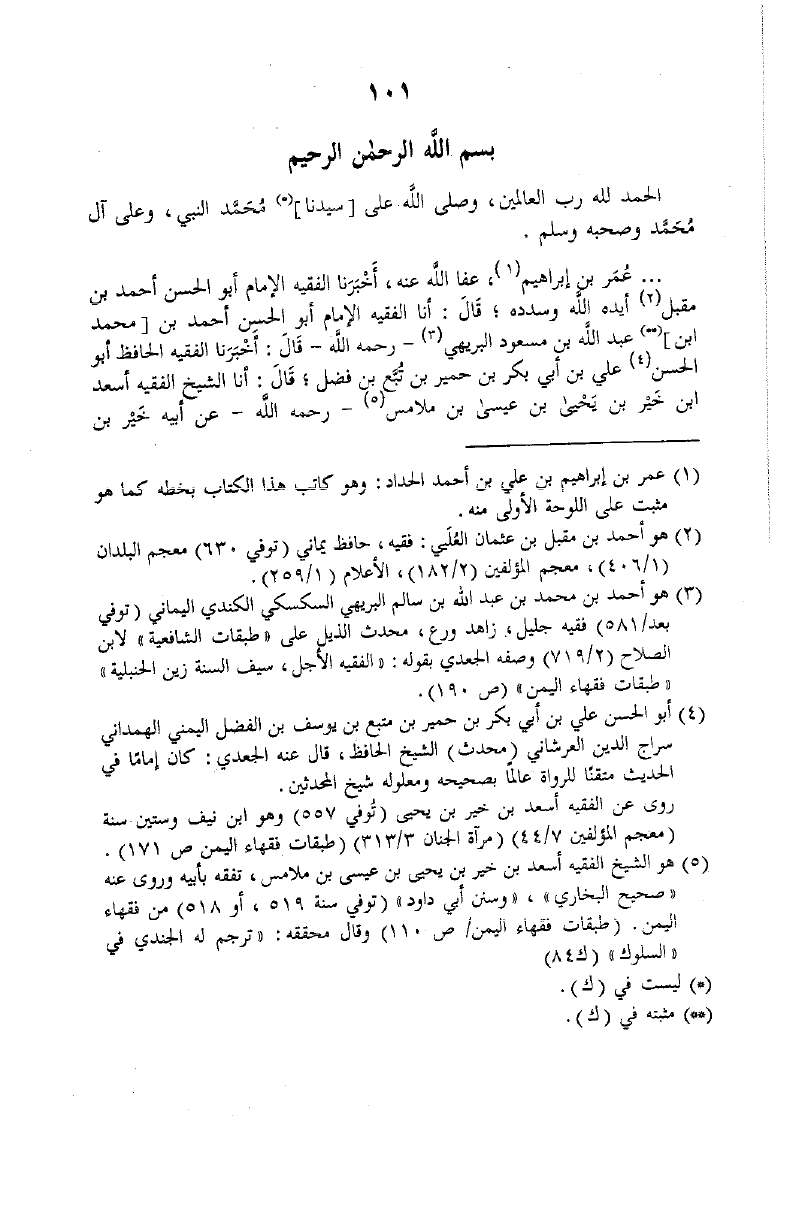 ١٠١
بسم اللَّه الرحمٰن الرحيم
الحمد لله رب العالمين، وصلى اللَّه على [سيدنا](*) مُحَمَّد النبي، وعلى آل
مُحَمَّد وصحبه وسلم .
... عُمَر بن إبراهيم(١)، عفا اللَّه عنه، أَخْبَرَنا الفقيه الإمام أبو الحسن أحمد بن
مقبل(٢) أيده اللَّه وسدده ؛ قَالَ : أنا الفقيه الإمام أبو الحسن أحمد بن [محمد
ابن](**) عبد اللَّه بن مسعود البريهي(٣) - رحمه اللَّه - قَالَ : أَخْبَرَنا الفقيه الحافظ أبو
الحسن(٤) علي بن أبي بكر بن حمير بن تُبَّع بن فضل ؛ قَالَ : أنا الشيخ الفقيه أسعد
ابن خَيْر بن يَحْيىٰ بن عيسىٰ بن ملامس(٥) - رحمه اللَّه - عن أبيه خَيْر بن
(١) عمر بن إبراهيم بن علي بن أحمد الحداد : وهو كاتب هذا الكتاب بخطه كما هو
مثبت على اللوحة الأولى منه .
(٢) هو أحمد بن مقبل بن عثمان العُلَبي : فقيه، حافظ يماني (توفي ٦٣٠) معجم البلدان
(٤٠٦/١)، معجم المؤلفين (١٨٢/٢)، الأعلام (٢٥٩/١).
(٣) هو أحمد بن محمد بن عبد الله بن سالم البريهي السكسكي الكندي اليماني (توفي
بعد/٥٨١) فقيه جليل، زاهد ورع، محدث الذيل على «طبقات الشافعية» لابن
الصلاح (٧١٩/٢) وصفه الجعدي بقوله : «الفقيه الأجل، سيف السنة زين الحنبلية»
«طبقات فقهاء اليمن» (ص ١٩٠).
(٤) أبو الحسن علي بن أبي بكر بن حمير بن متبع بن يوسف بن الفضل اليمني الهمداني
سراج الدين العرشاني (محدث) الشيخ الحافظ، قال عنه الجعدي : كان إمامًا في
الحديث متقنًا للرواة عالمًا بصحيحه ومعلوله شيخ المحدثين .
روى عن الفقيه أسعد بن خير بن يحيى (تُوفي ٥٥٧) وهو ابن نيف وستين سنة
(معجم المؤلفين ٤٤/٧) (مرآة الجنان ٣١٣/٣) (طبقات فقهاء اليمن ص ١٧١) .
(٥) هو الشيخ الفقيه أسعد بن خير بن يحيى بن عيسى بن ملامس، تفقه بأبيه وروى عنه
«صحيح البخاري»، «وسنن أبي داود» (توفي سنة ٥١٩، أو ٥١٨) من فقهاء
اليمن . (طبقات فقهاء اليمن/ ص ١١٠) وقال محققه : «ترجم له الجندي في
«السلوك» (ك٨٤)
(*) ليست في (ك).
(**) مثبته في (ك).